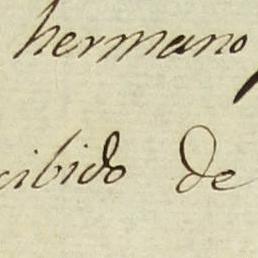 hermano
cibido de